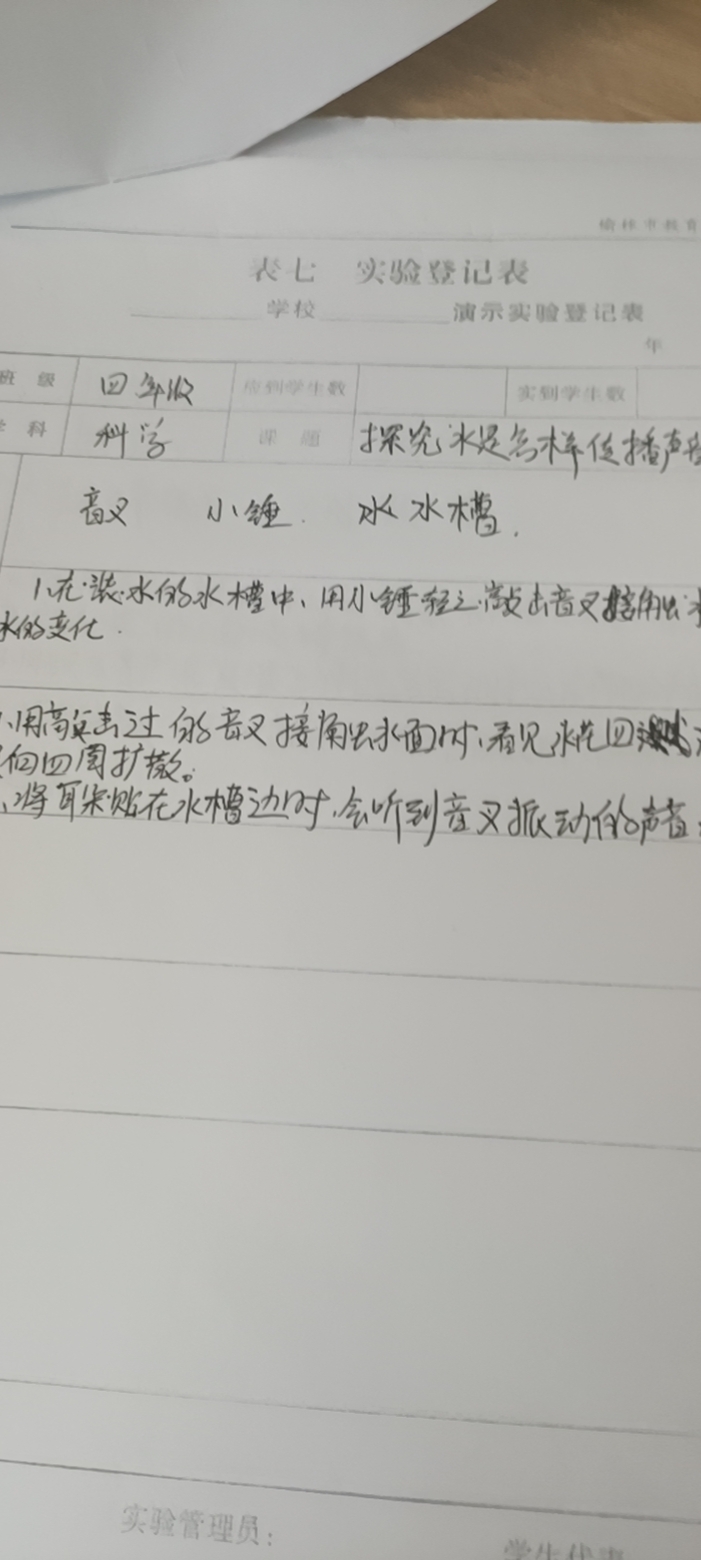 榆林市教育
表七 实验登记表
学校 演示实验登记表
年
班 级 四年级 应到学生数 实到学生数
学 科 科学 课 题 探究水是怎样传播声音
音叉 小锤. 水 水槽.
1、在装水的水槽中、用小锤轻轻敲击音叉接触水
水的变化.
、用敲击过的音叉接触水面时、看见水花四
向四周扩散。
、将耳朵贴在水槽边时.会听到音叉振动的声音
实验管理员:
学生代表